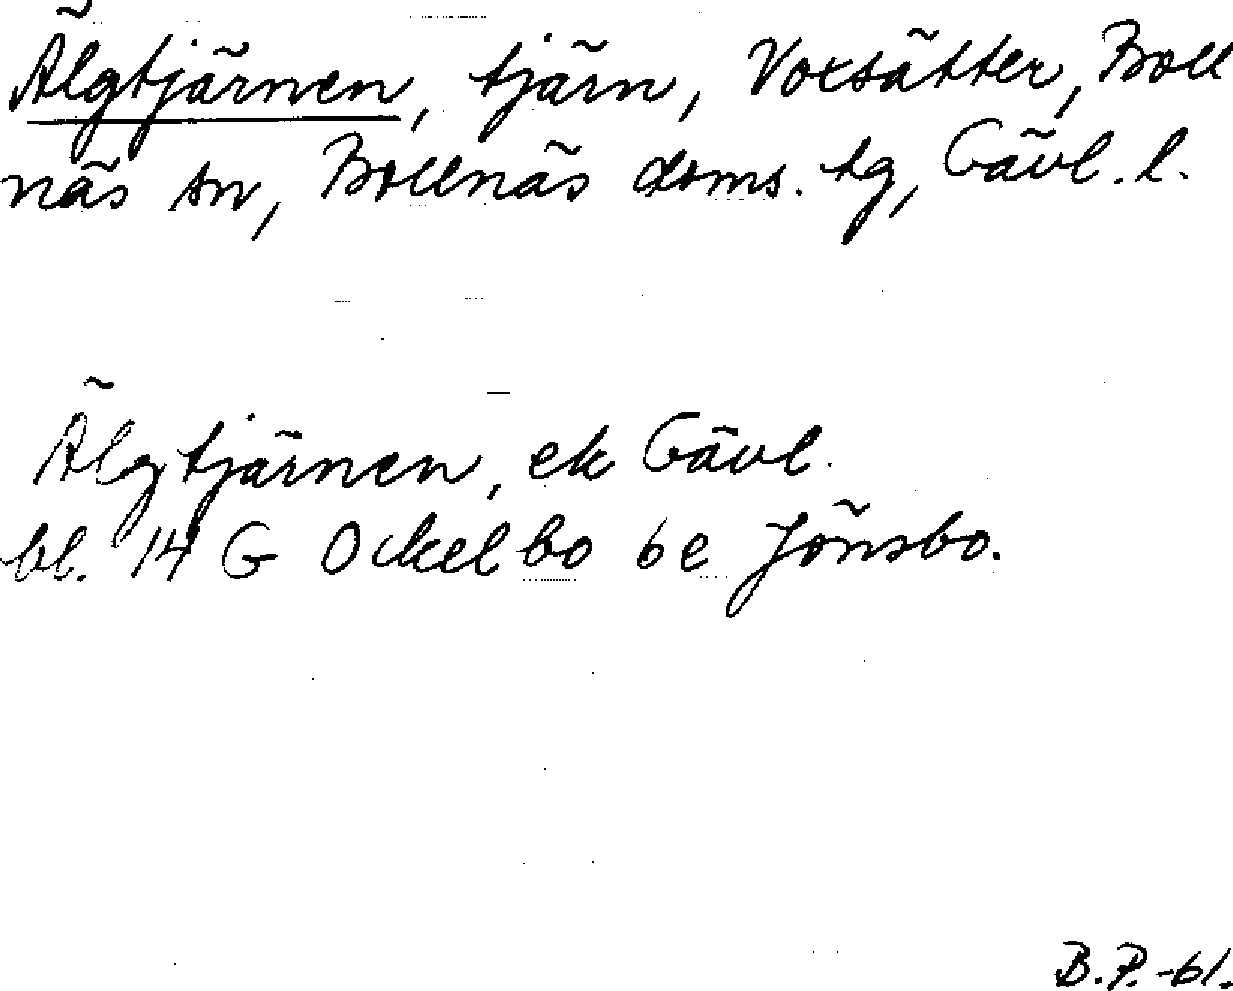 Älgtjärnen, tjärn, Voxsätter, Boll
näs sn, Bollnäs doms. tg, Gävl. l.
Älgtjärnen, ek Gävl.
bl. 14 G Ockelbo 6e Jönsbo.
B.P.-61.